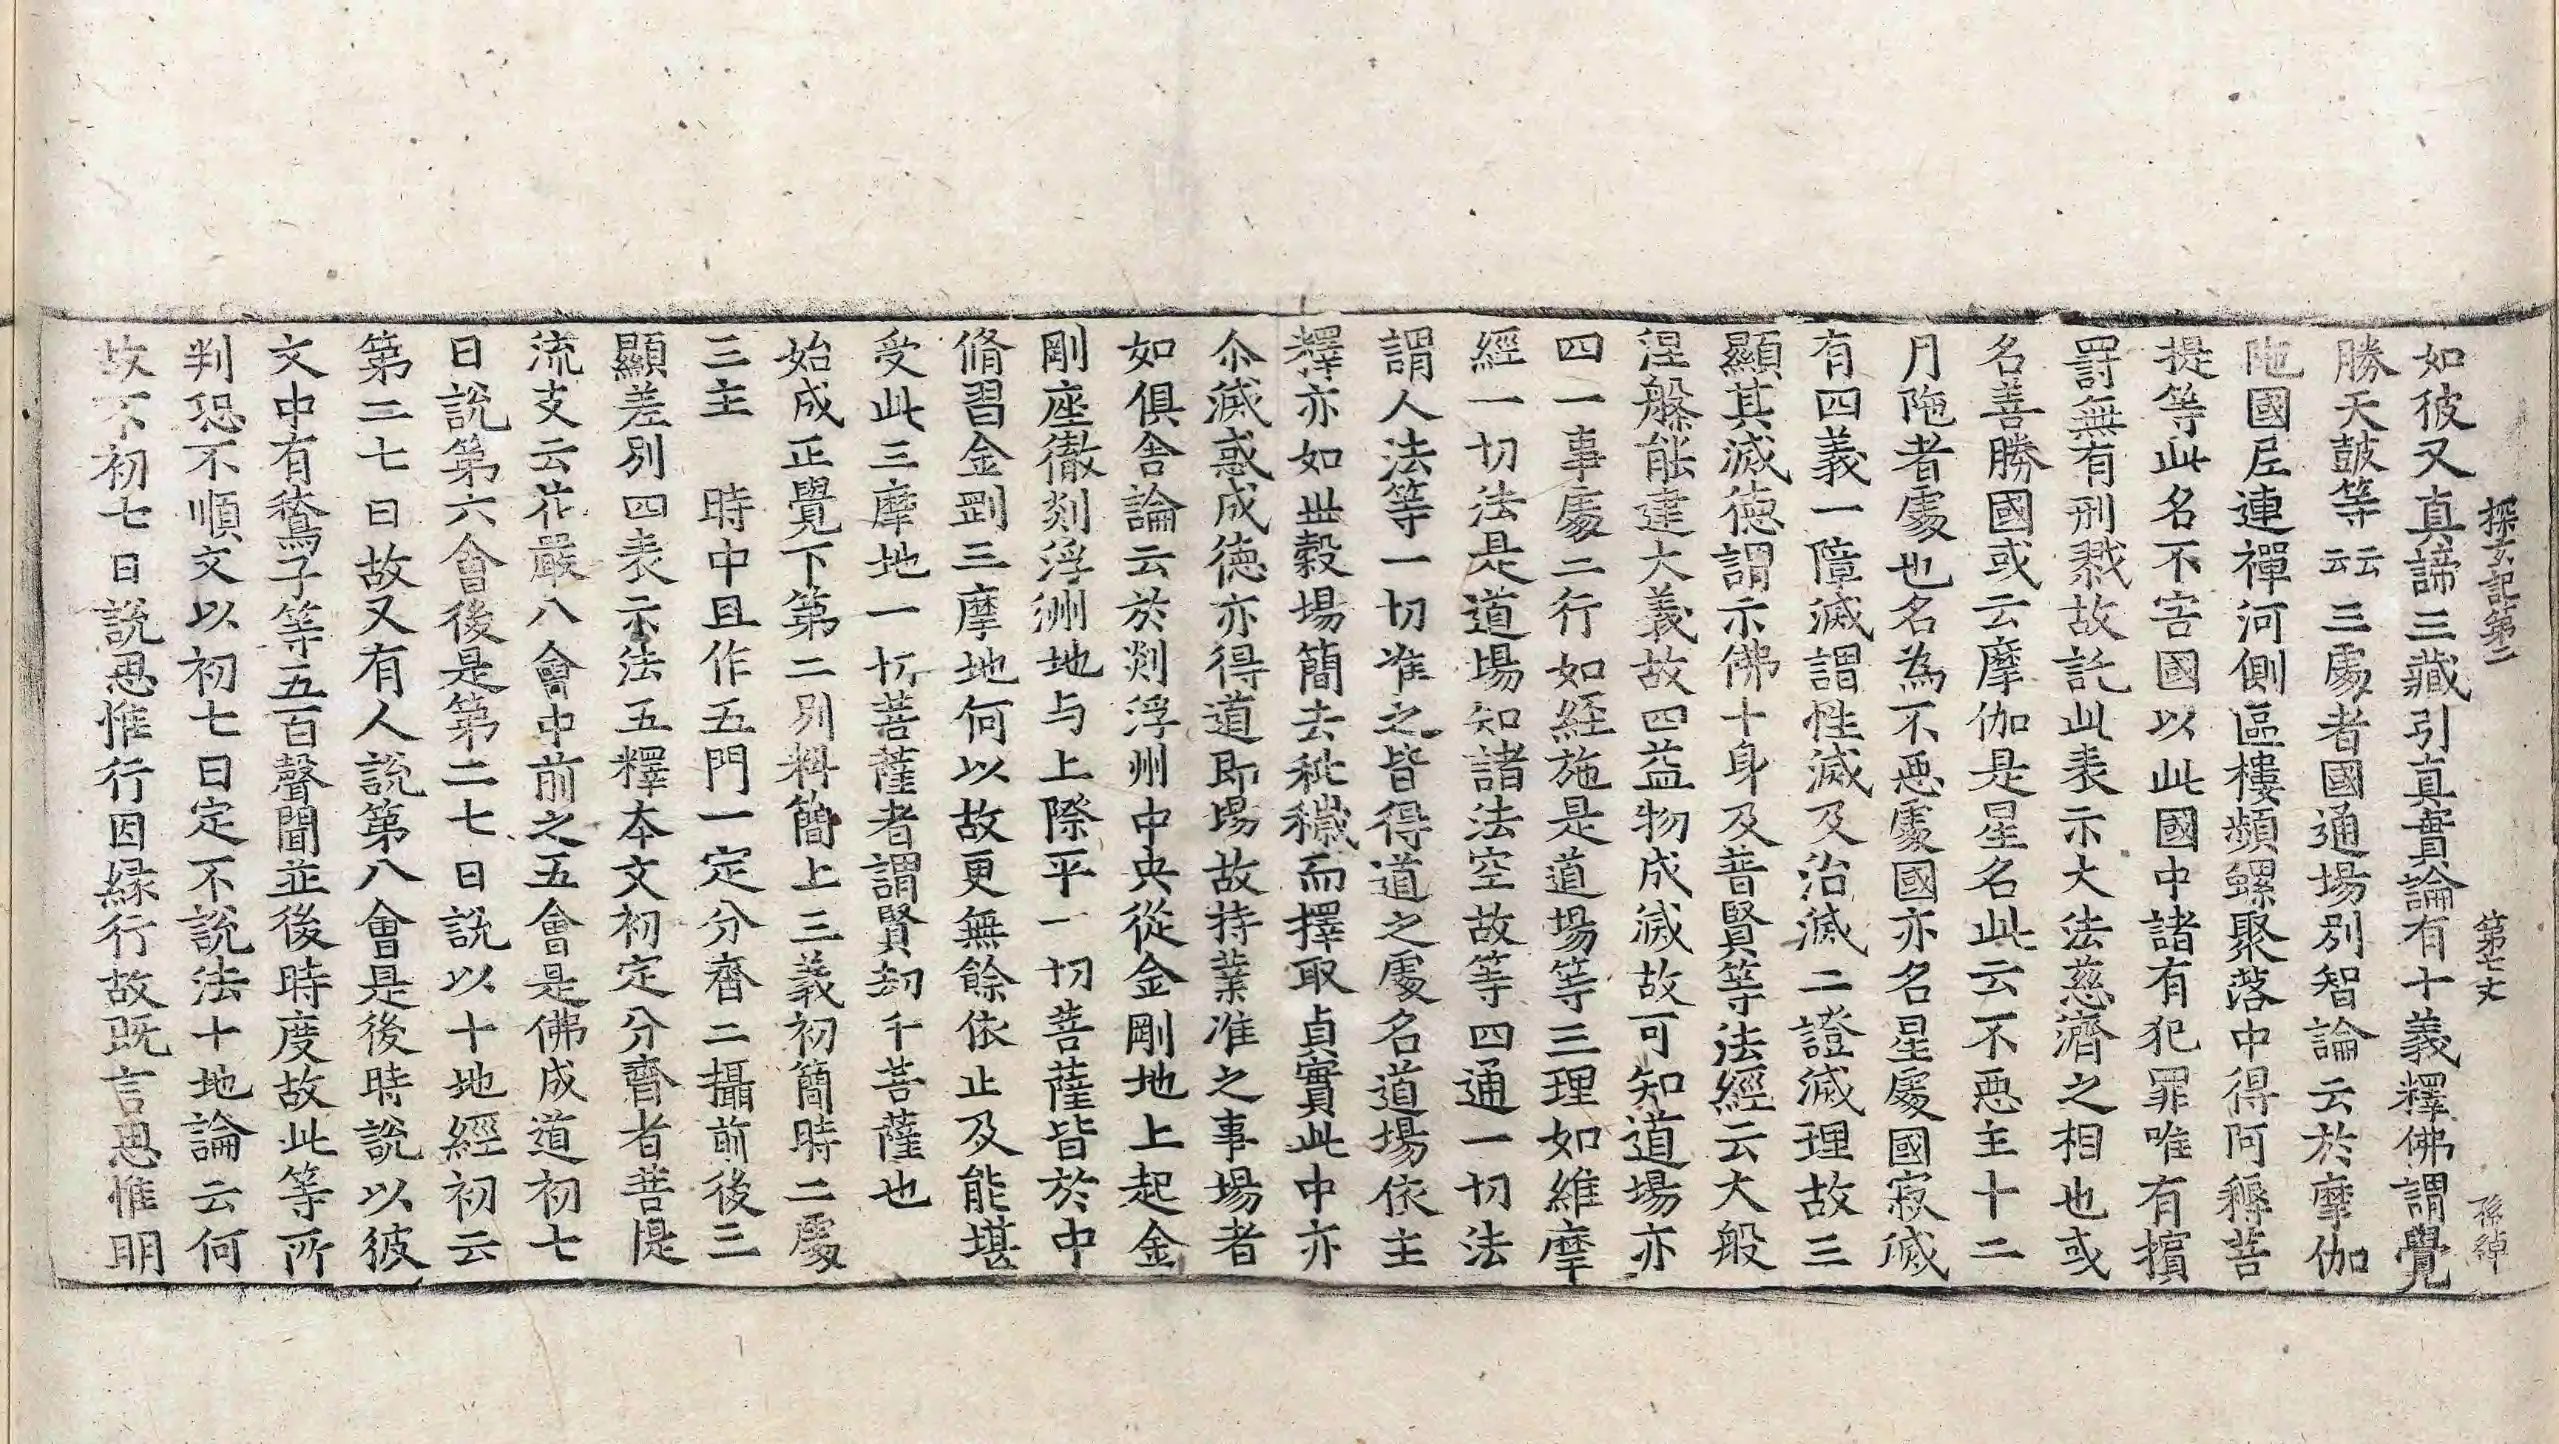 探玄記第二 第七丈 孫綽
如彼又真諦三藏引真實論有十義釋佛謂覺
勝天鼓等云云三處者國通場別智論云於摩伽
陁國尼連禪河側區樓頻螺聚落中得阿耨菩
提等此名不害國以此國中諸有犯罪唯有擯
罸無有刑戮故託此表示大法慈濟之相也或
名善勝國或云摩伽是星名此云不惡主十二
月陁者處也名為不惡處國亦名星處國寂滅
有四義一障滅謂性滅及治滅二證滅理故三
顯其滅德謂示佛十身及普賢等法經云大般
涅槃能建大義故四益物成滅故可知道場亦
四一事處二行如經施是道場等三理如維摩
經一切法是道場知諸法空故等四通一切法
謂人法等一切准之皆得道之處名道場依主
釋亦如世穀場簡去秕穢而擇取貞實此中亦
尒滅惑成德亦得道即場故持業准之事場者
如俱舍論云於剡浮州中央從金剛地上起金
剛座徹剡浮洲地与上際平一切菩薩皆於中
脩習金剛三摩地何以故更無餘依止及能堪
受此三摩地一切菩薩者謂賢劫千菩薩也
始成正覺下第二別料簡上三義初簡時二處
三主 時中且作五門一定分齊二攝前後三
顯差別四表示法五釋本文初定分齊者菩提
流支云花嚴八會中前之五會是佛成道初七
日說第六會後是第二七日說以十地經初云
第二七日故又有人說第八會是後時說以彼
文中有鶖子等五百聲聞並後時度故此等所
判恐不順文以初七日定不說法十地論云何
故不初七日說思惟行因緣行故既言思惟明